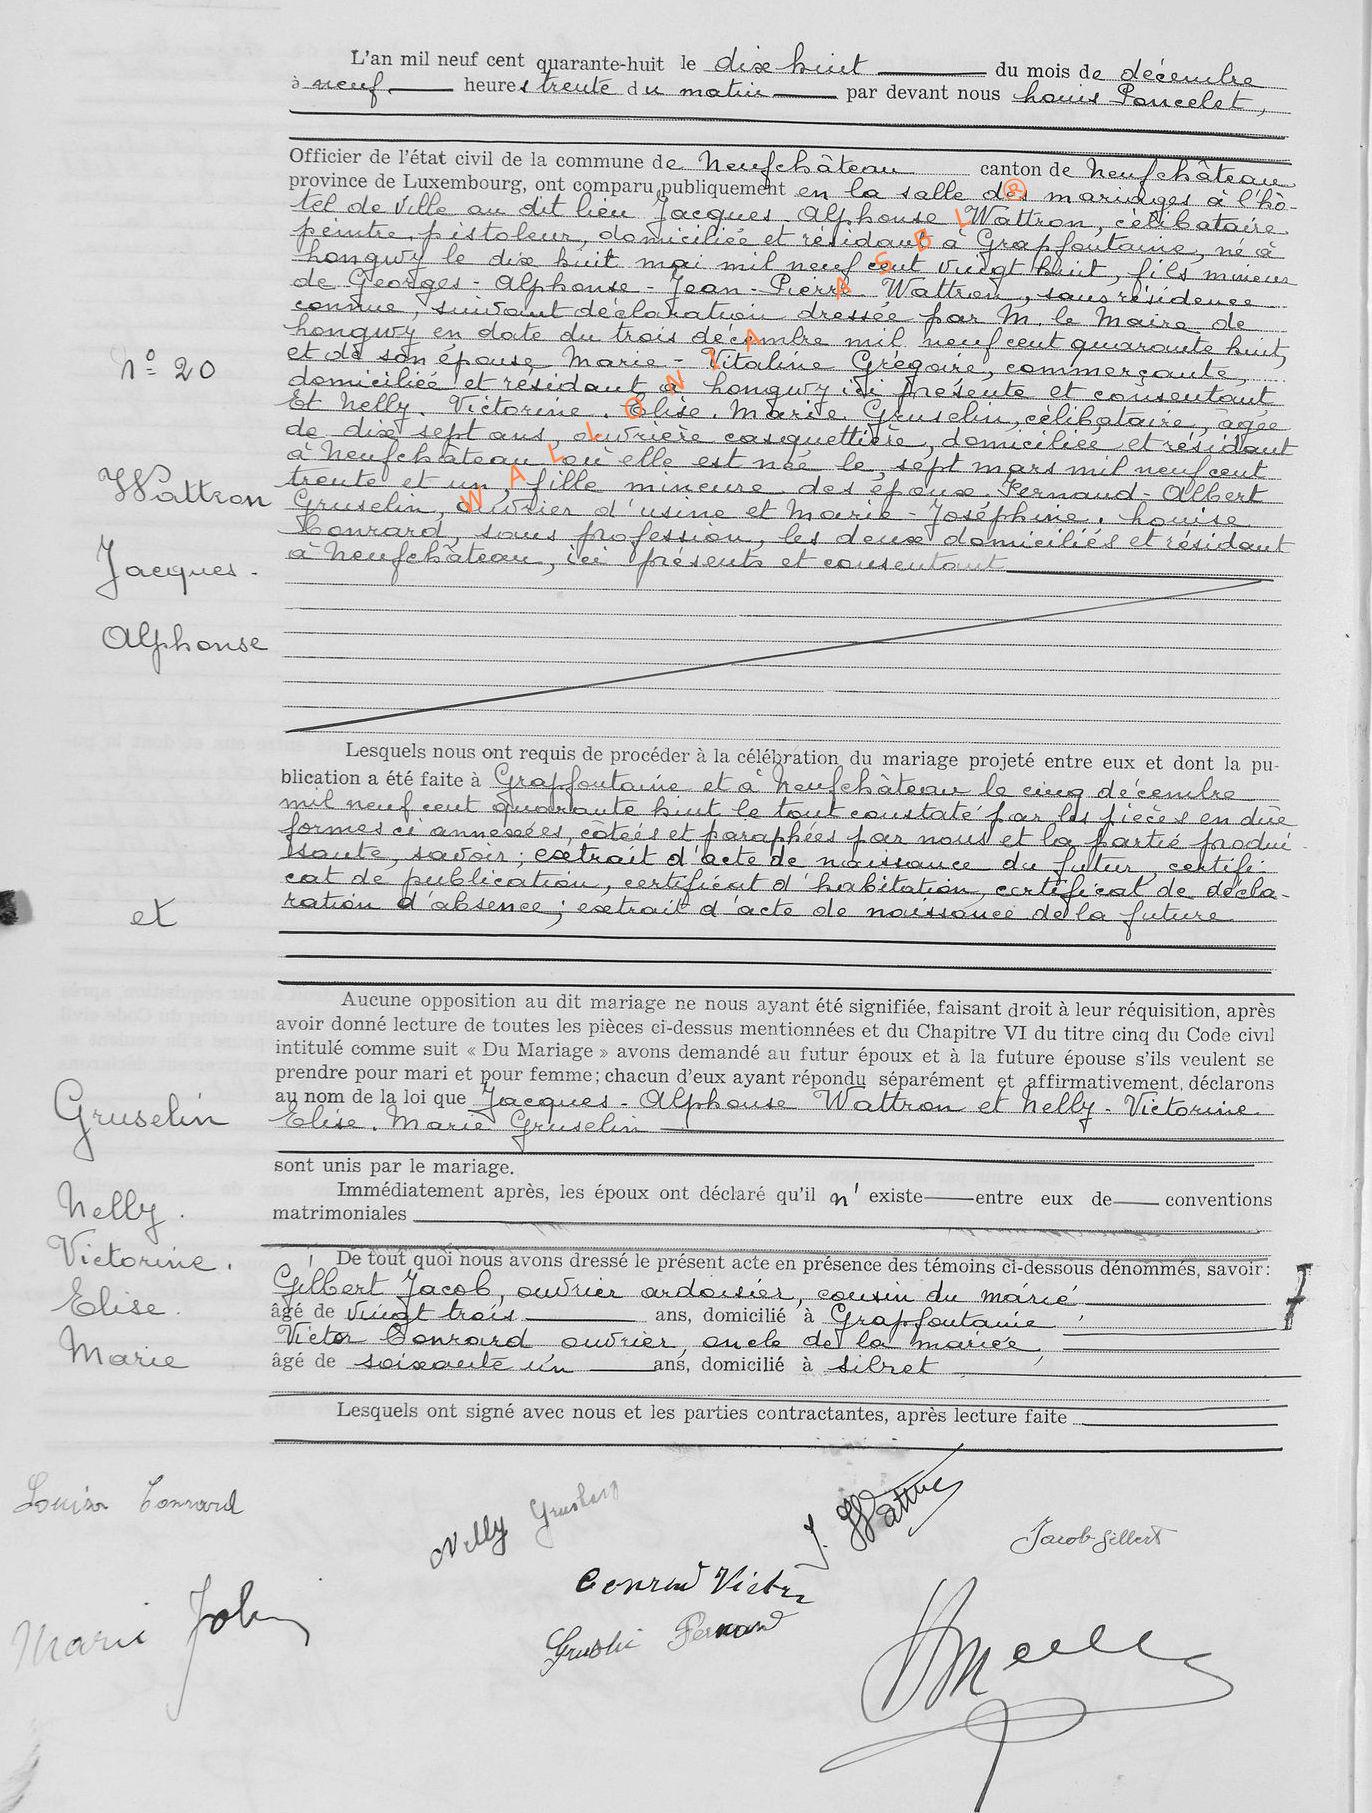 L'an mil neuf cent quarante-huit le dix huit du mois de décembre
à neuf heures trente du matin par devant nous Louis Poncelet,
Officier de l'état civil de la commune de Neufchâteau canton de Neufchâteau
province de Luxembourg, ont comparu publiquement en la salle des mariages à l'hô-
tel de ville au dit lieu Jacques-Alphonse Wattron, célibataire
peintre, pistoleur, domiciliée et résidant à Grapfontaine, né à
Longwy le dix huit mai mil neuf cent vingt huit, fils mineur
de Georges-Alphonse-Jean-Pierre Wattron, sans résidence
connue, suivant déclaration dressée par M. le Maire de
Longwy en date du trois décembre mil neuf cent quarante huit,
et de son épouse Marie-Vitaline Grégoire, commerçante,
N° 20
domiciliée et résidant à Longwy ici présente et consentant
Et Nelly. Victorine. Elise. Marie Gruselin, célibataire, agée
de dix sept ans, ouvrière casquettière, domiciliée et résidant
à Neufchâteau où elle est née le sept mars mil neuf cent
trente et un, fille mineure des époux Fernand-Albert
Wattron
Gruselin, ouvrier d'usine et Marie-Joséphine. Louise
Conrard, sans profession, les deux domiciliés et résidant
à Neufchâteau, ici présents et consentant
Jacques-
Alphonse
WALLONIA ASBL ®
Lesquels nous ont requis de procéder à la célébration du mariage projeté entre eux et dont la pu-
blication a été faite à Grapfontaine et à Neufchâteau le cinq décembre
mil neuf cent quarante huit le tout constaté par les pièces en due
formes ci annexées, cotées et paraphées par nous et la partie produi-
sante, savoir; extrait d'acte de naissance du futur, certifi
cat de publication, certificat d'habitation, certificat de décla-
ration d'absence; extrait d'acte de naissance de la future
et
Aucune opposition au dit mariage ne nous ayant été signifiée, faisant droit à leur réquisition, après
avoir donné lecture de toutes les pièces ci-dessus mentionnées et du Chapitre VI du titre cinq du Code civil
intitulé comme suit « Du Mariage » avons demandé au futur époux et à la future épouse s'ils veulent se
prendre pour mari et pour femme; chacun d'eux ayant répondu séparément et affirmativement, déclarons
au nom de la loi que Jacques-Alphonse Wattron et Nelly-Victorine
Gruselin
Elise. Marie Gruselin
sont unis par le mariage.
Immédiatement après, les époux ont déclaré qu'il n'existe entre eux de conventions
Nelly.
matrimoniales
Victorine.
De tout quoi nous avons dressé le présent acte en présence des témoins ci-dessous dénommés, savoir:
Gilbert Jacob, ouvrier ardoisier, cousin du marié
Elise.
âgé de vingt trois ans, domicilié à Grapfontaine
Victor Conrard ouvrier, oncle de la mariée,
Marie
âgé de soixante un ans, domicilié à Sibret
Lesquels ont signé avec nous et les parties contractantes, après lecture faite
Louisa Conrard
Nelly
J. Wattron
Jacob Gilbert
Conrard Victor
Marie
Fernand